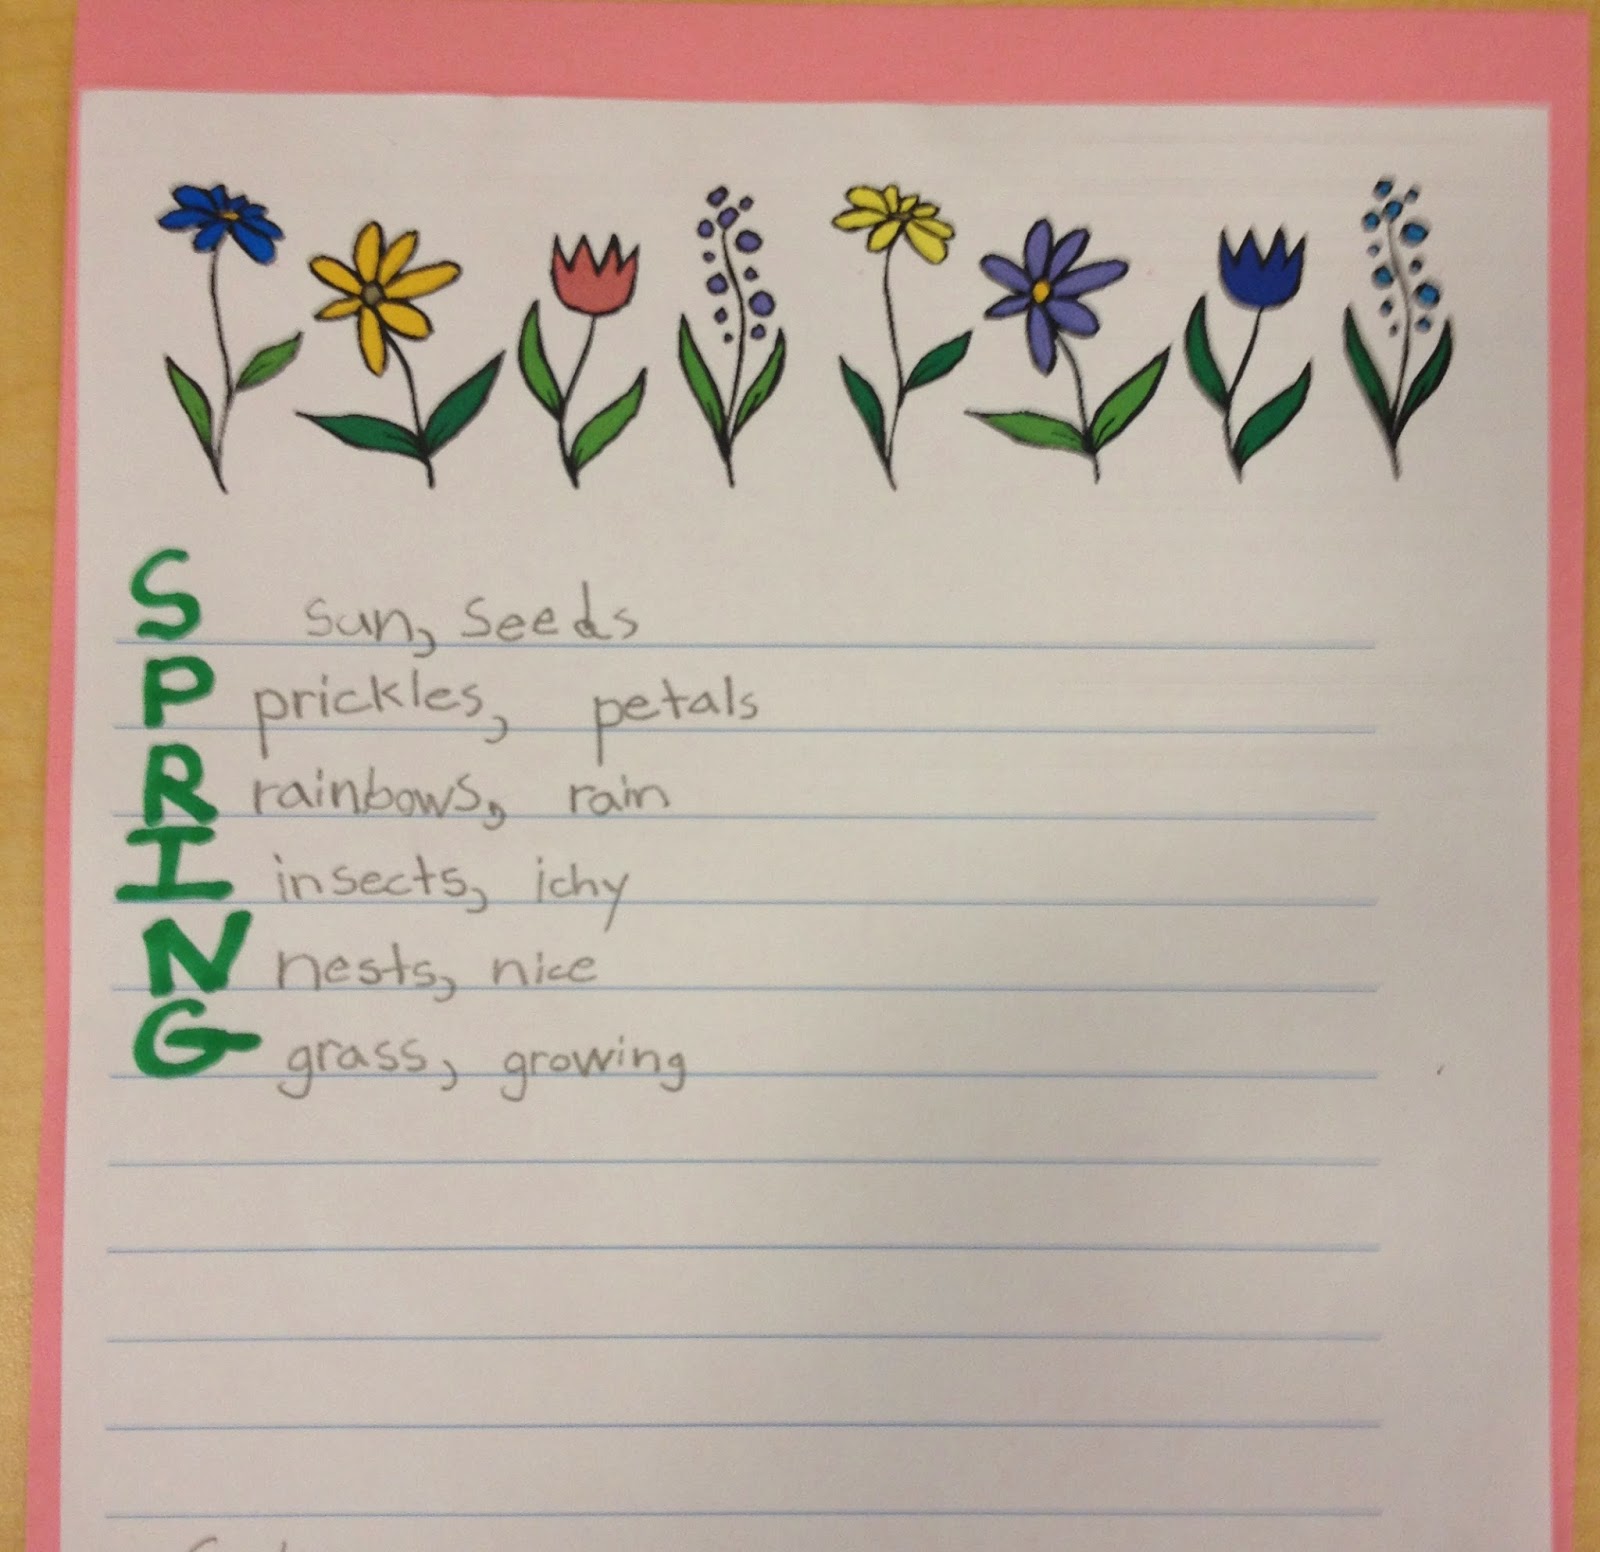 S sun, seeds
P prickles, petals
R rainbows, rain
I insects, ichy
N nests, nice
G grass, growing